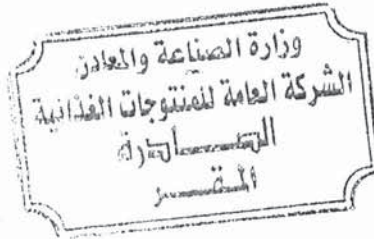 وزارة الصناعة والمعادن
الشركة العامة للمنتوجات الغذائية
الصادرة
المقر